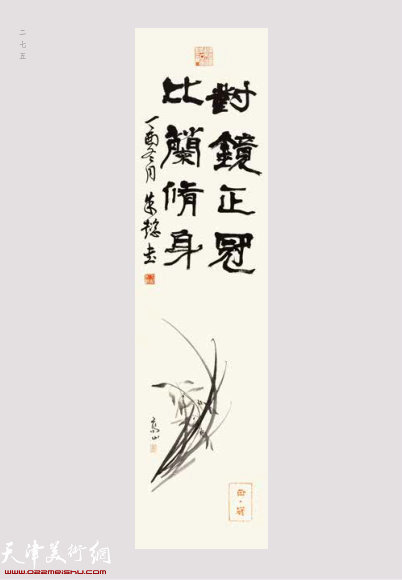 二七五
對鏡正冠
比蘭脩身
丁酉冬月
天津美術網
www.022meishu.com